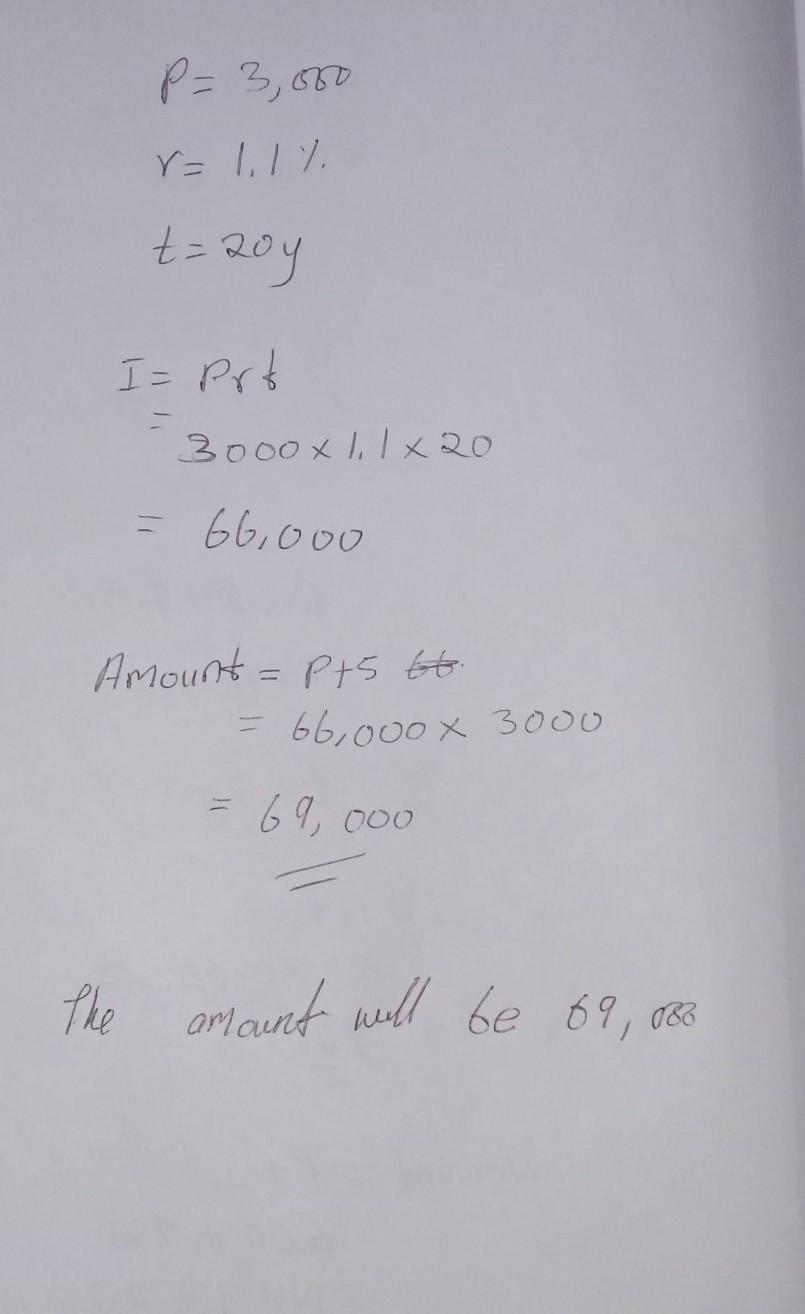 P = 3,000
r = 1.1 %
t = 20y
I = Prt
=
3000 x 1.1 x 20
= 66,000
Amount = P+S 66.
= 66,000 x 3000
= 69,000
The amount will be 69,000